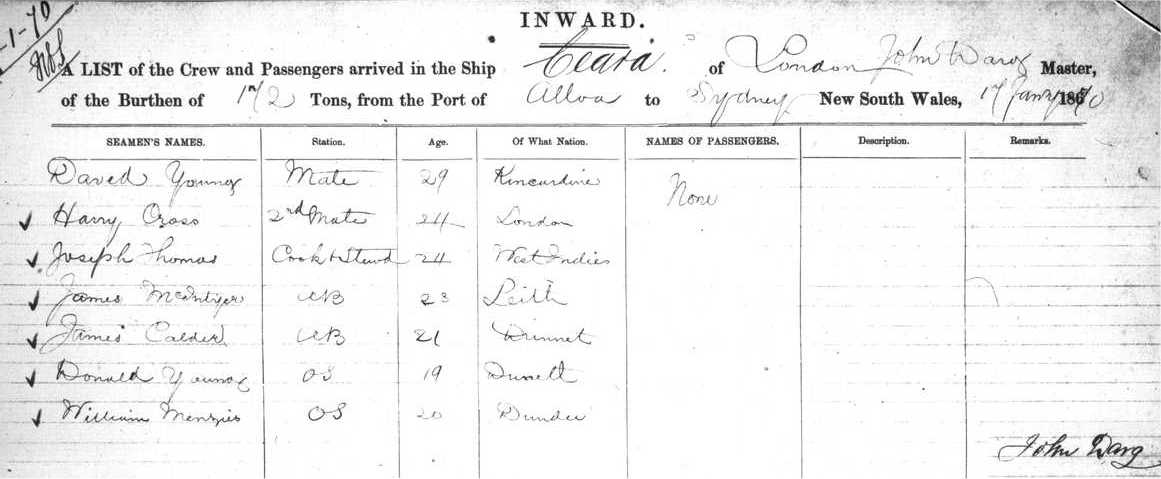 -1-70
INWARD.
A LIST of the Crew and Passengers arrived in the Ship "Ceara" of London John Darg Master,
of the Burthen of 172 Tons, from the Port of Alloa to Sydney New South Wales, 17 Jany 1870
SEAMEN'S NAMES. Station. Age. Of What Nation. NAMES OF PASSENGERS. Description. Remarks.
David Young Mate 29 Kincardine None
Harry Cross 2nd Mate 24 London
Joseph Thomas Cook & Stewd 24 West Indies
James McIntyer AB 23 Leith
James Calder AB 21 Dunnet
Donald Young OS 19 Dunett
William Menzies OS 20 Dundee
John Darg